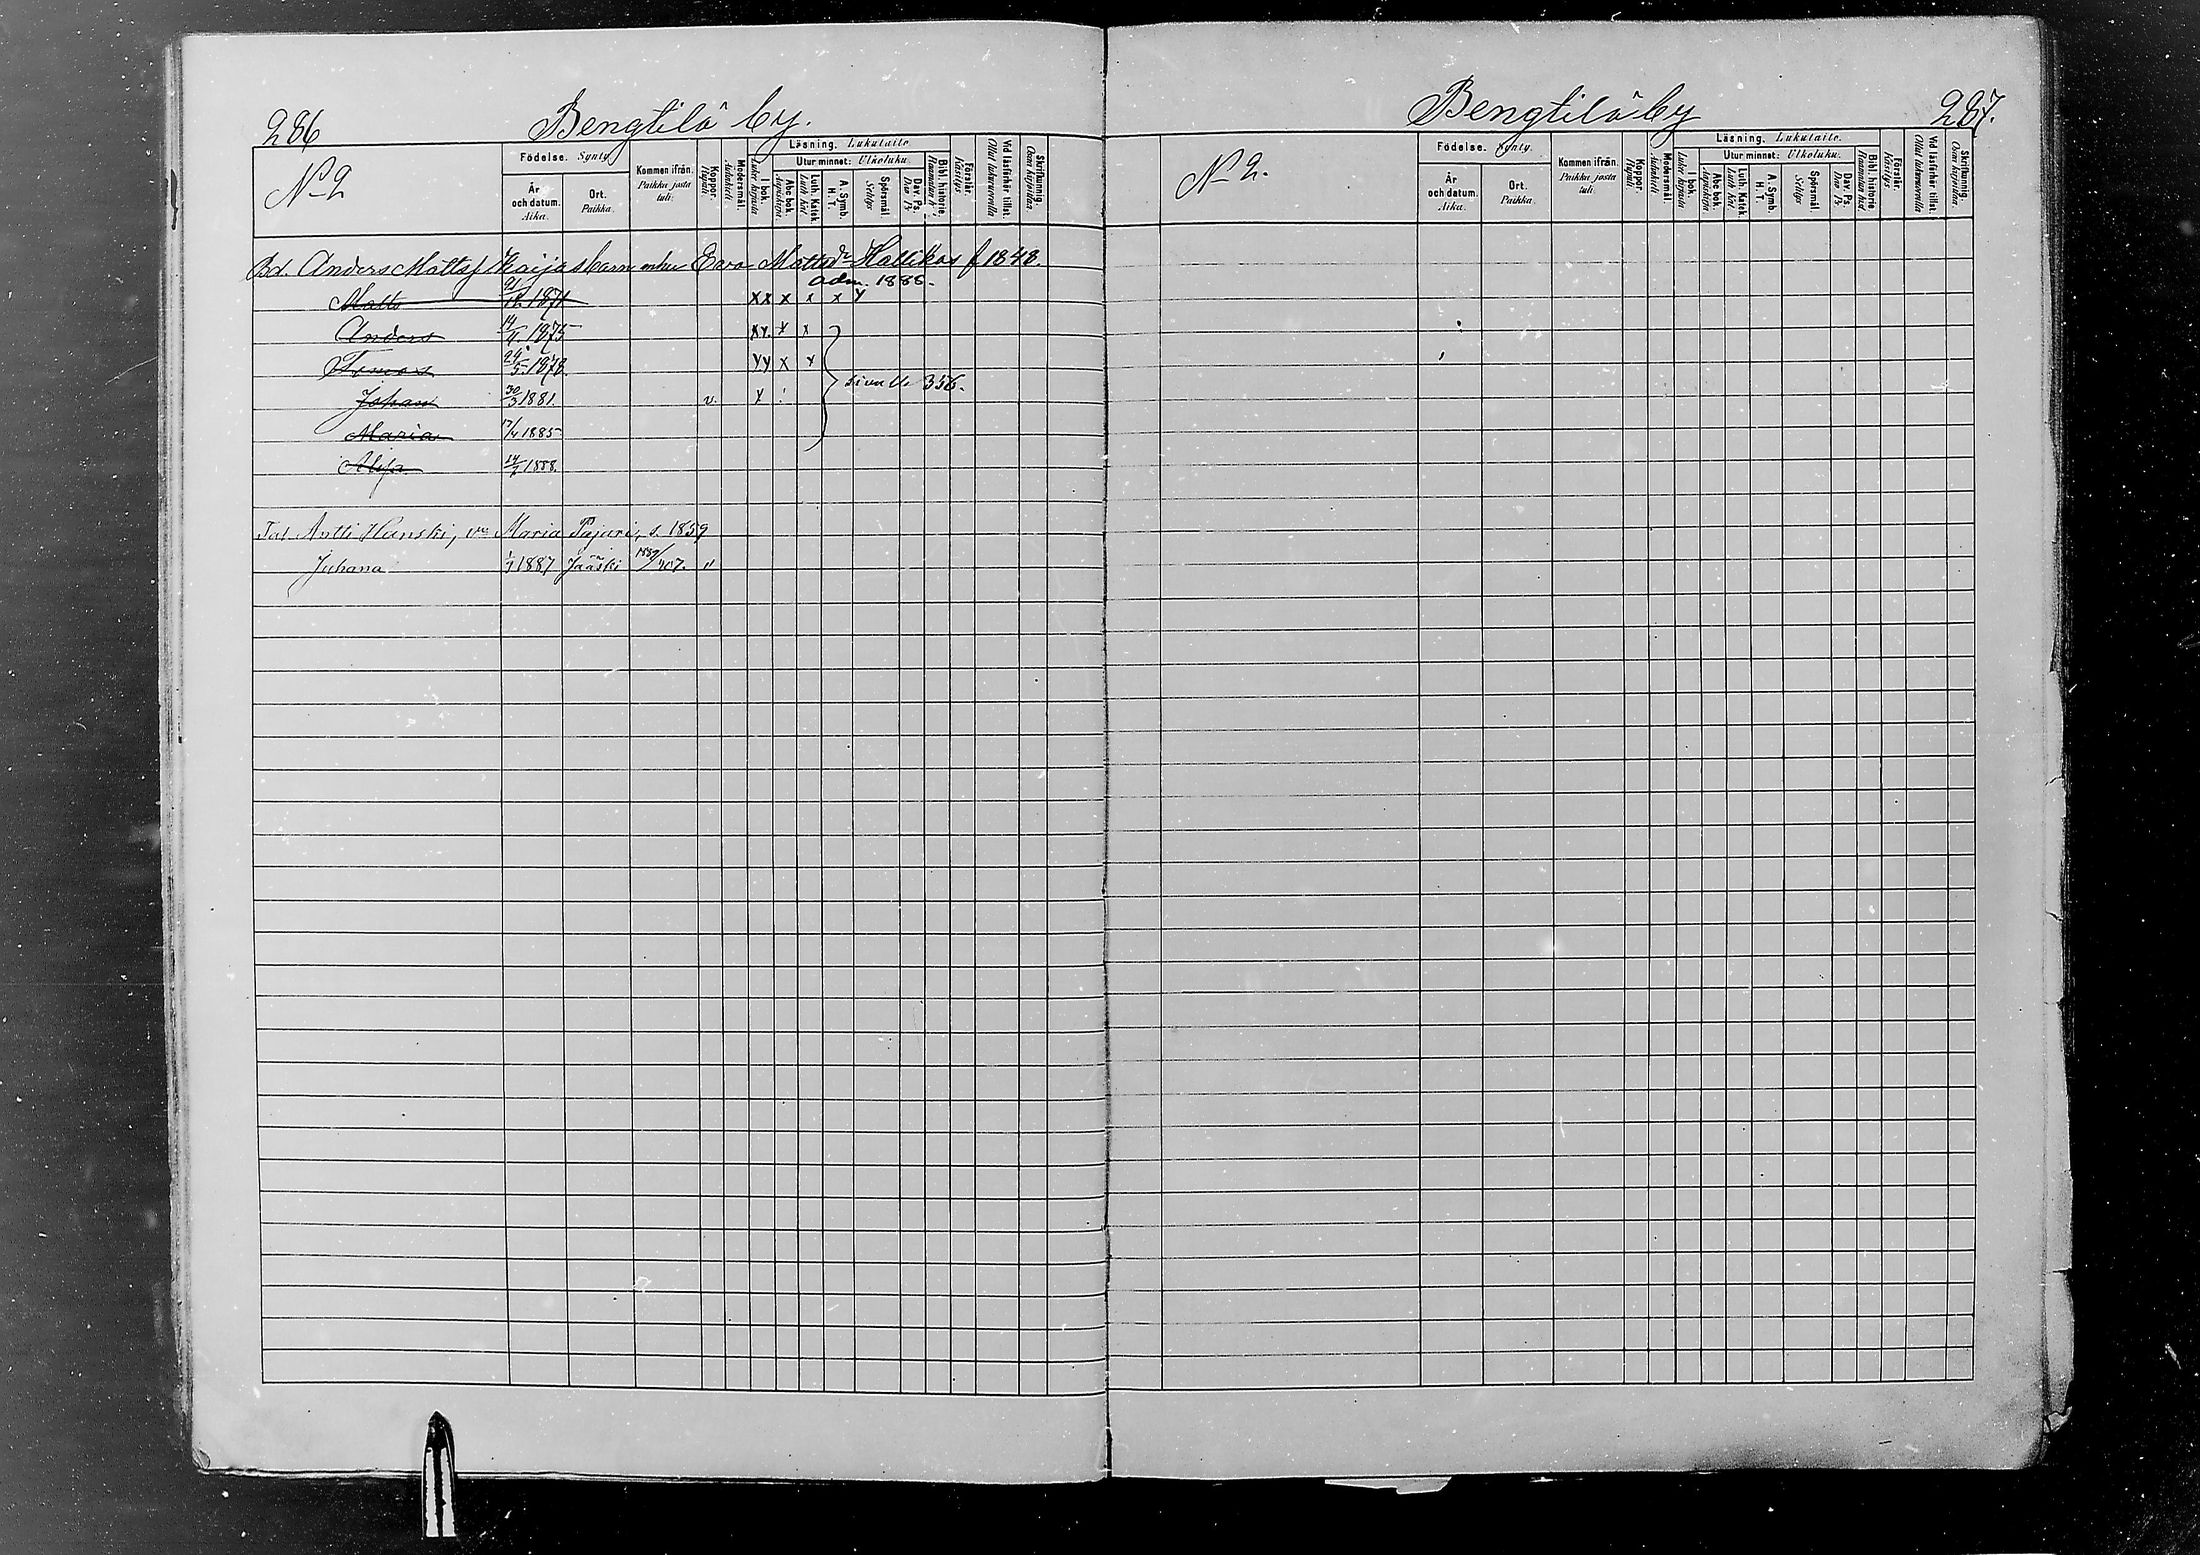 286
Bengtilä by.
No 2
Födelse. Synty.
År och datum. Aika.
Ort. Paikka.
Kommen ifrån. Paikka josta tuli.
Koppor. Rupuli
Modersmål. Äidinkieli
Läsning. Lukutaito
I bok. Lukee kirjasta
Utur minnet: Ulkoluku.
Abc bok. Aapiskirja
Luth. Katek. Luth Kat.
A. Symb. H. T.
Spörsmål. Selitys
Dav. Ps. Dav Ps
Bibl. historie. Raamatun h.
Förstår. Käsitys.
Vid läsförhör tillst. Ollut lukuvuorolla
Skrifkunnig. Osaa kirjoittaa.
Bd. Anders Mattsf Kaijas barn Eva Mattsdr Hallikas f 1848.
adm. 1888.
Matts 1871 x x x x x
Anders 1875 x x x x
Tomas 1878 x x x x
sivulle 356.
Johan 30/3 1881. v. x
Maria 1885
Alisa 1888.
Antti Hanski, vm Maria Pajari, s. 1859
Juhana 1/1 1887 Jääski 1889/407. "
Bengtilä by
287.
No 2.
Födelse. Synty.
År och datum. Aika.
Ort. Paikka.
Kommen ifrån. Paikka josta tuli.
Koppor. Rupuli
Modersmål. Äidinkieli
Läsning. Lukutaito.
I bok. Lukee kirjasta
Utur minnet: Ulkoluku.
Abc bok. Aapiskirja
Luth. Katek. Luth Kat.
A. Symb. H. T.
Spörsmål. Selitys
Dav. Ps. Dav Ps
Bibl. historie. Raamatun hist.
Förstår. Käsitys.
Vid läsförhör tillst. Ollut lukuvuorolla
Skrifkunnig. Osaa kirjoittaa.